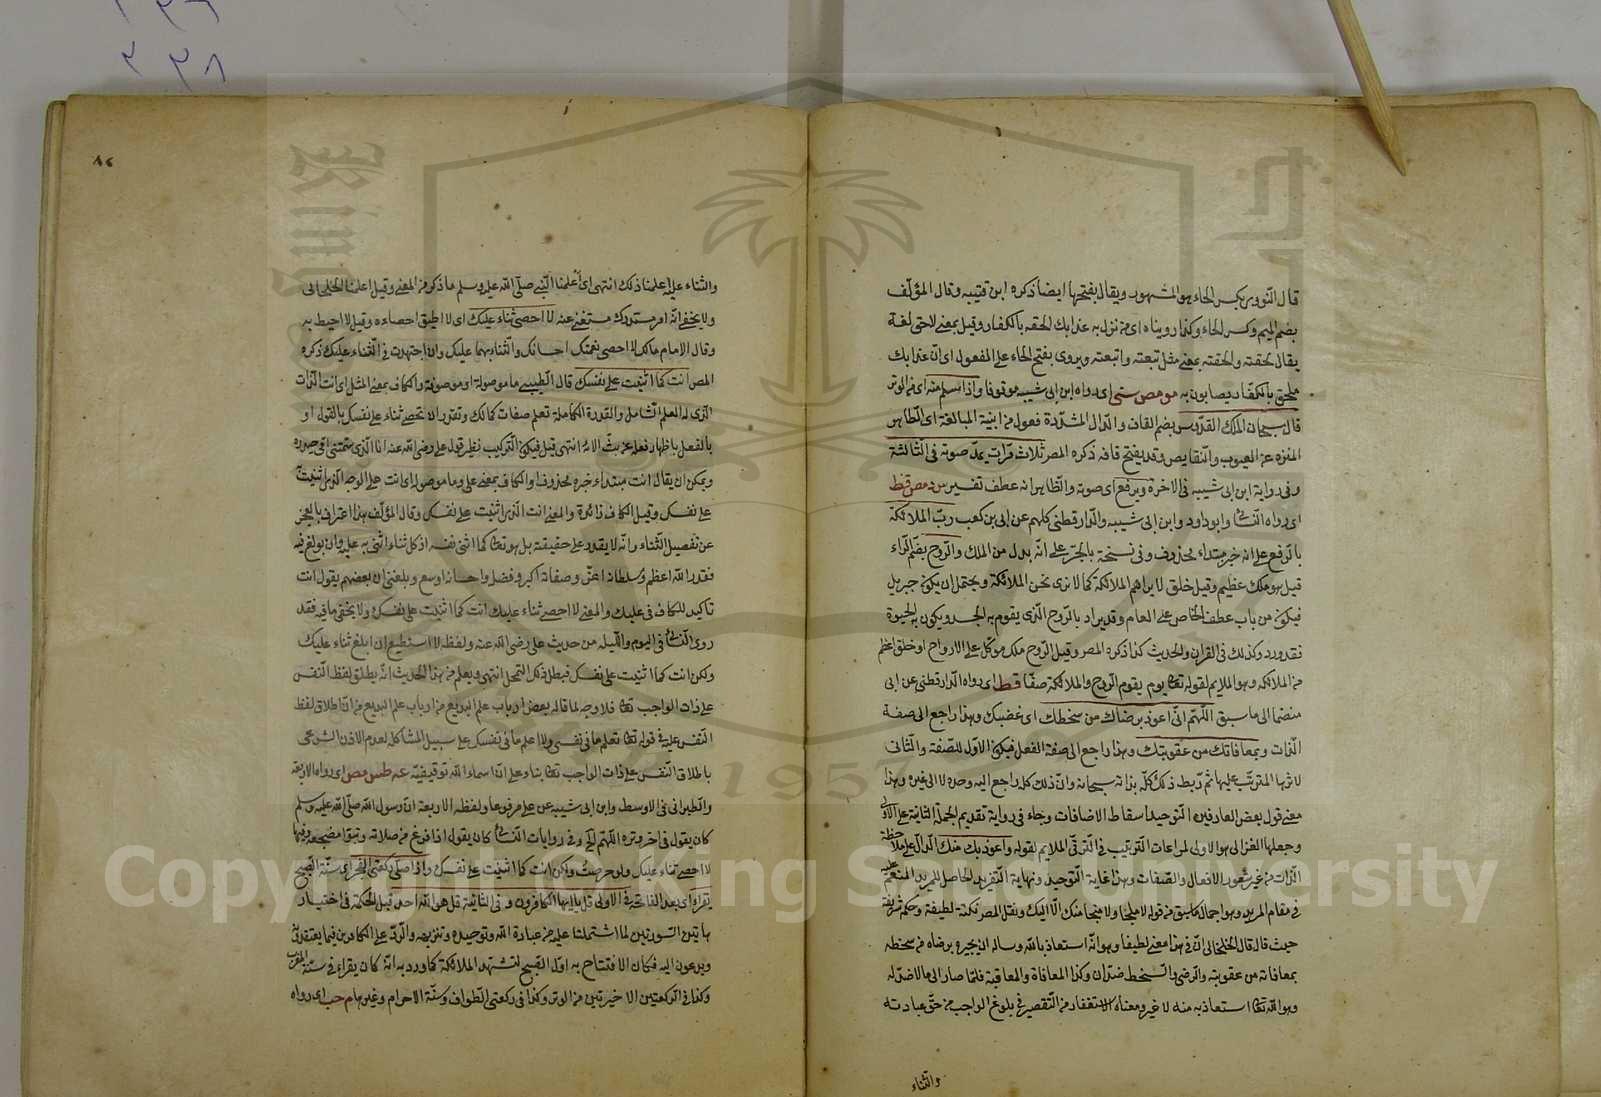 قال النووي بكسر الحاء هو المشهور ويقال بفتحها ايضا ذكره ابن قتيبه وقال المؤلف
بضم الميم وكسر الحاء وكذا رويناه اى من نزل به عذابك الحقه بالكفار وقيل بمعنى لاحق لغة
يقال لحقته والحقته بمعنى مثل تبعته واتبعته ويروى بفتح الحاء على المفعول اى ان عذابك
ملحق بالكفار يصابون به مو مص سنى اى رواه ابن ابى شيبه موقوفا واذا سلم منه اى من الوتر
قال سبحان الملك القدوس بضم القاف والدال المشددة فعول من ابنية المبالغة اى الطاهر
المنزه عن العيوب والنقايص وقد يفتح قافه ذكره المصر ثلاث مرات يمد صوته فى الثالثة
وفى رواية ابن ابى شيبه فى الاخرة ويرفع اى صوته والظاهر انه عطف تفسير س د مص قط
اى رواه النسائى وابو داود وابن ابى شيبه والدارقطنى كلهم عن ابى بن كعب رب الملائكة
بالرفع على انه خبر مبتداء محذوف وفى نسخة بالجر على انه بدل من الملك والروح بضم الراء
قيل هو ملك عظيم وقيل خلق لا يراهم الملائكة كما لا نرى نحن الملائكة ويحتمل ان يكون جبريل
فيكون من باب عطف الخاص على العام وقد يراد بالروح الذى يقوم به الجسد ويكون به الحيوة
فقد ورد كذلك فى القران والحديث كذا ذكره المصر وقيل الروح ملك موكل على الارواح او خلق اعظم
من الملائكه وهو الملايم لقوله تعالى يوم يقوم الروح والملائكة صفا قط اى رواه الدارقطنى عن ابى
منضما الى ما سبق اللهم انى اعوذ برضاك من سخطك اى غضبك وهذا راجع الى صفة
الذات وبمعافاتك من عقوبتك وهذا راجع الى صفة الفعل فيكون الاول للصفة والثانى
لاثرها المترتب عليها ثم ربط ذلك كله بذاته سبحانه وان ذلك كله راجع اليه وحده لا الى غيره وهذا
معنى قول بعض العارفين التوحيد اسقاط الاضافات وجاء فى رواية تقديم الجملة الثانية على الاولى
وجعلها الغزالى هو الاولى لمراعات الترتيب فى الترقى الملايم لقوله واعوذ بك منك الدال على ملاحظة
الذات من غير شعور الافعال والصفات وهذا غاية التوحيد ونهاية التفريد الحاصل للمريد المنعم عليه
فى مقام المزيد وهو اجمال ما سبق من قوله لا ملجا ولا منجا منك الا اليك ونقل المصر نكتة لطيفة وحكمة شريفة
حيث قال قال الخطابى ان فى هذا معنى لطيفا وهو انه استعاذ بالله وساله ان يجيره برضاه من سخطه
بمعافاته من عقوبته والرضى والسخط ضدان وكذا المعافاة والمعاقبة فلما صار الى ما لا ضد له
وهو الله تعالى استعاذ به منه لا غير ومعناه الاستغفار من التقصير فى بلوغ الواجب من حق عبادته
والثناء
٨٢
والثناء عليه اعلمنا ذلك انتهى اى اعلمنا النبى صلى الله عليه وسلم ما ذكر من المعنى وقيل اعلمنا الخطابى
ولا يخفى انه امر مستدرك مستغنى عنه لا احصى ثناء عليك اى لا اطيق احصاءه وقيل لا احيط به
وقال الامام مالك لا احصى نعمتك احسانك والثناء بهما عليك وان اجتهدت فى الثناء عليك ذكره
المصر انت كما اثنيت على نفسك قال الطيبى ما موصولة او موصوفة والكاف بمعنى المثل اى انت الذات
الذى له العلم الشامل والقدرة الكاملة تعلم صفات كمالك وتقدر ان تحصى ثناء على نفسك بالقول او
بالفعل باظهار فعله عن بث الائه انتهى قيل فيكون التركيب نظير قول على رضى الله عنه انا الذى سمتنى امى حيدره
ويمكن ان يقال انت مبتداء خبره محذوف والكاف بمعنى على وما موصوله اى انت على الوجه الذى اثنيت
على نفسك وقيل الكاف زائدة والمعنى انت الذى اثنيت على نفسك وقال المؤلف هذا اعتراف بالعجز
عن تفصيل الثناء وانه لا يقدر على حقيقته بل هو تعالى كما اثنى نفسه اذ كل ثناء اثنى به عليه وان بولغ فيه
فقدر الله اعظم وسلطانه اعز وصفاته اكبر وفضله واحسانه اوسع وبلغنى ان بعضهم يقول انت
تاكيد للكاف فى عليك والمعنى لا احصى ثناء عليك انت كما اثنيت على نفسك ولا يخفى ما فيه فقد
روى النسائى فى اليوم والليله من حديث على رضى الله عنه ولفظه لا استطيع ان ابلغ ثناء عليك
ولكن انت كما اثنيت على نفسك فبطل ذلك التمحل انتهى ويعلم من هذا الحديث انه يطلق لفظ النفس
على ذات الواجب تعالى فلا وجه لما قاله بعض ارباب علم البديع من ارباب علم البديع من ان اطلاق لفظ
النفس عليه فى قوله تعالى تعلم ما فى نفسى ولا اعلم ما فى نفسك على سبيل المشاكلة لعدم الاذن الشرعى
باطلاق النفس على ذات الواجب تعالى بناء على ان اسماء الله توقيفية عه طس مص اى رواه الاربعة
والطبرانى فى الاوسط وابن ابى شيبه عن على مرفوعا ولفظه الاربعة ان رسول الله صلى الله عليه وسلم
كان يقول فى اخر وتره اللهم الخ وفى روايات النسائى كان يقول اذا فرغ من صلاته وتبوا مضجعه وفيها
لا احصى ثناء عليك ولو حرصت ولكن انت كما اثنيت على نفسك واذا صلى ركعتى الفجر اى سنة الصبح
يقراء اى بعد الفاتحة فى الاولى قل يا ايها الكافرون وفى الثانية قل هو الله احد قيل الحكمة فى اختيار
هاتين السورتين لما اشتملتا عليه من عبادة الله وتوحيده وتنزيهه والرد على الكافرين فيما يعتقدونه
ويدعون اليه فكان الافتتاح به اول الصبح لتشهد الملائكة كما ورد به انه كان يقراء فى سنة المغرب
وكذا فى الركعتين الاخيرتين من الوتر وكذا فى ركعتى الطواف وسنة الاحرام وغيرها م حب اى رواه
1957
Copyright © King Saud University